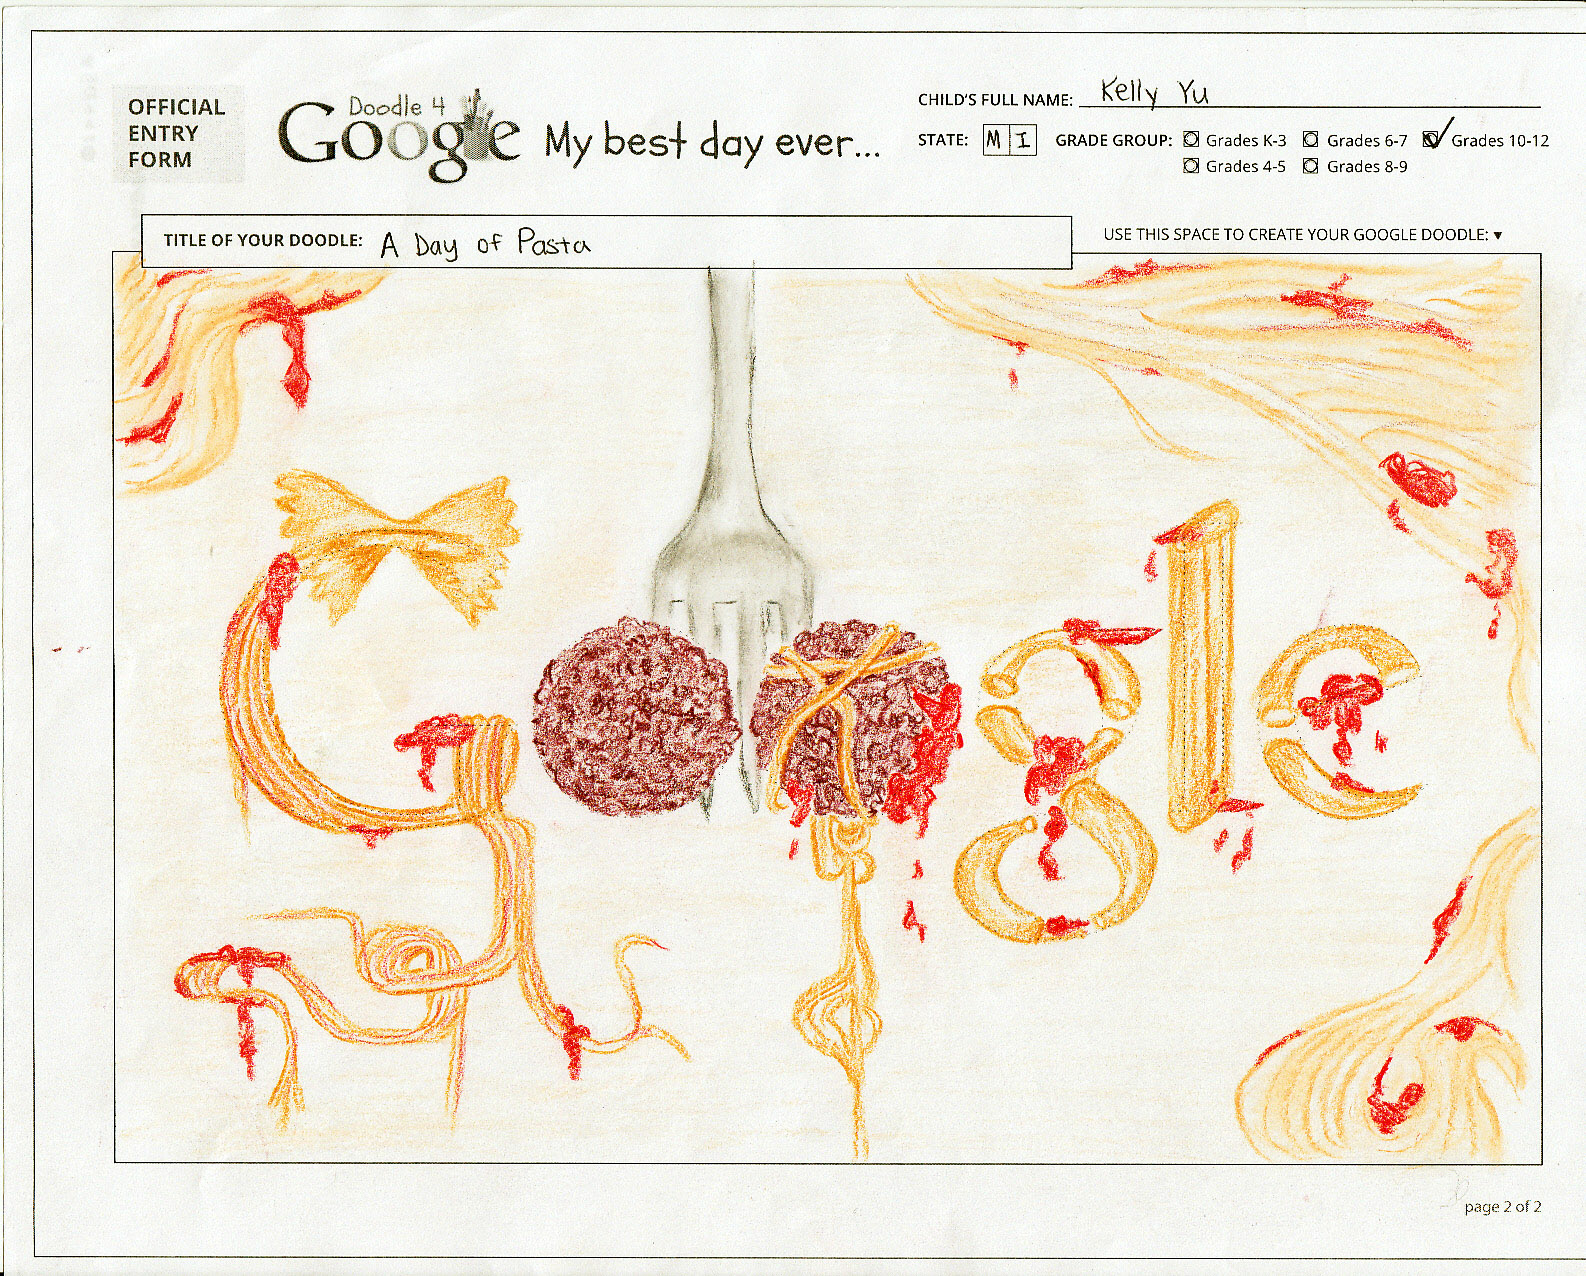 OFFICIAL
ENTRY
FORM
Doodle 4
Google My best day ever...
CHILD'S FULL NAME: Kelly Yu
STATE: MI GRADE GROUP: Grades K-3 Grades 6-7 Grades 10-12
Grades 4-5 Grades 8-9
TITLE OF YOUR DOODLE: A Day of Pasta
USE THIS SPACE TO CREATE YOUR GOOGLE DOODLE: ▼
Google
page 2 of 2